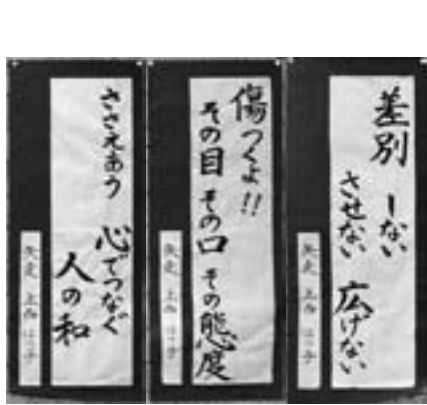 差別 しない
させない 広げない
傷つくよ!!
その目 その口 その態度
ささえあう 心でつなぐ
人の和